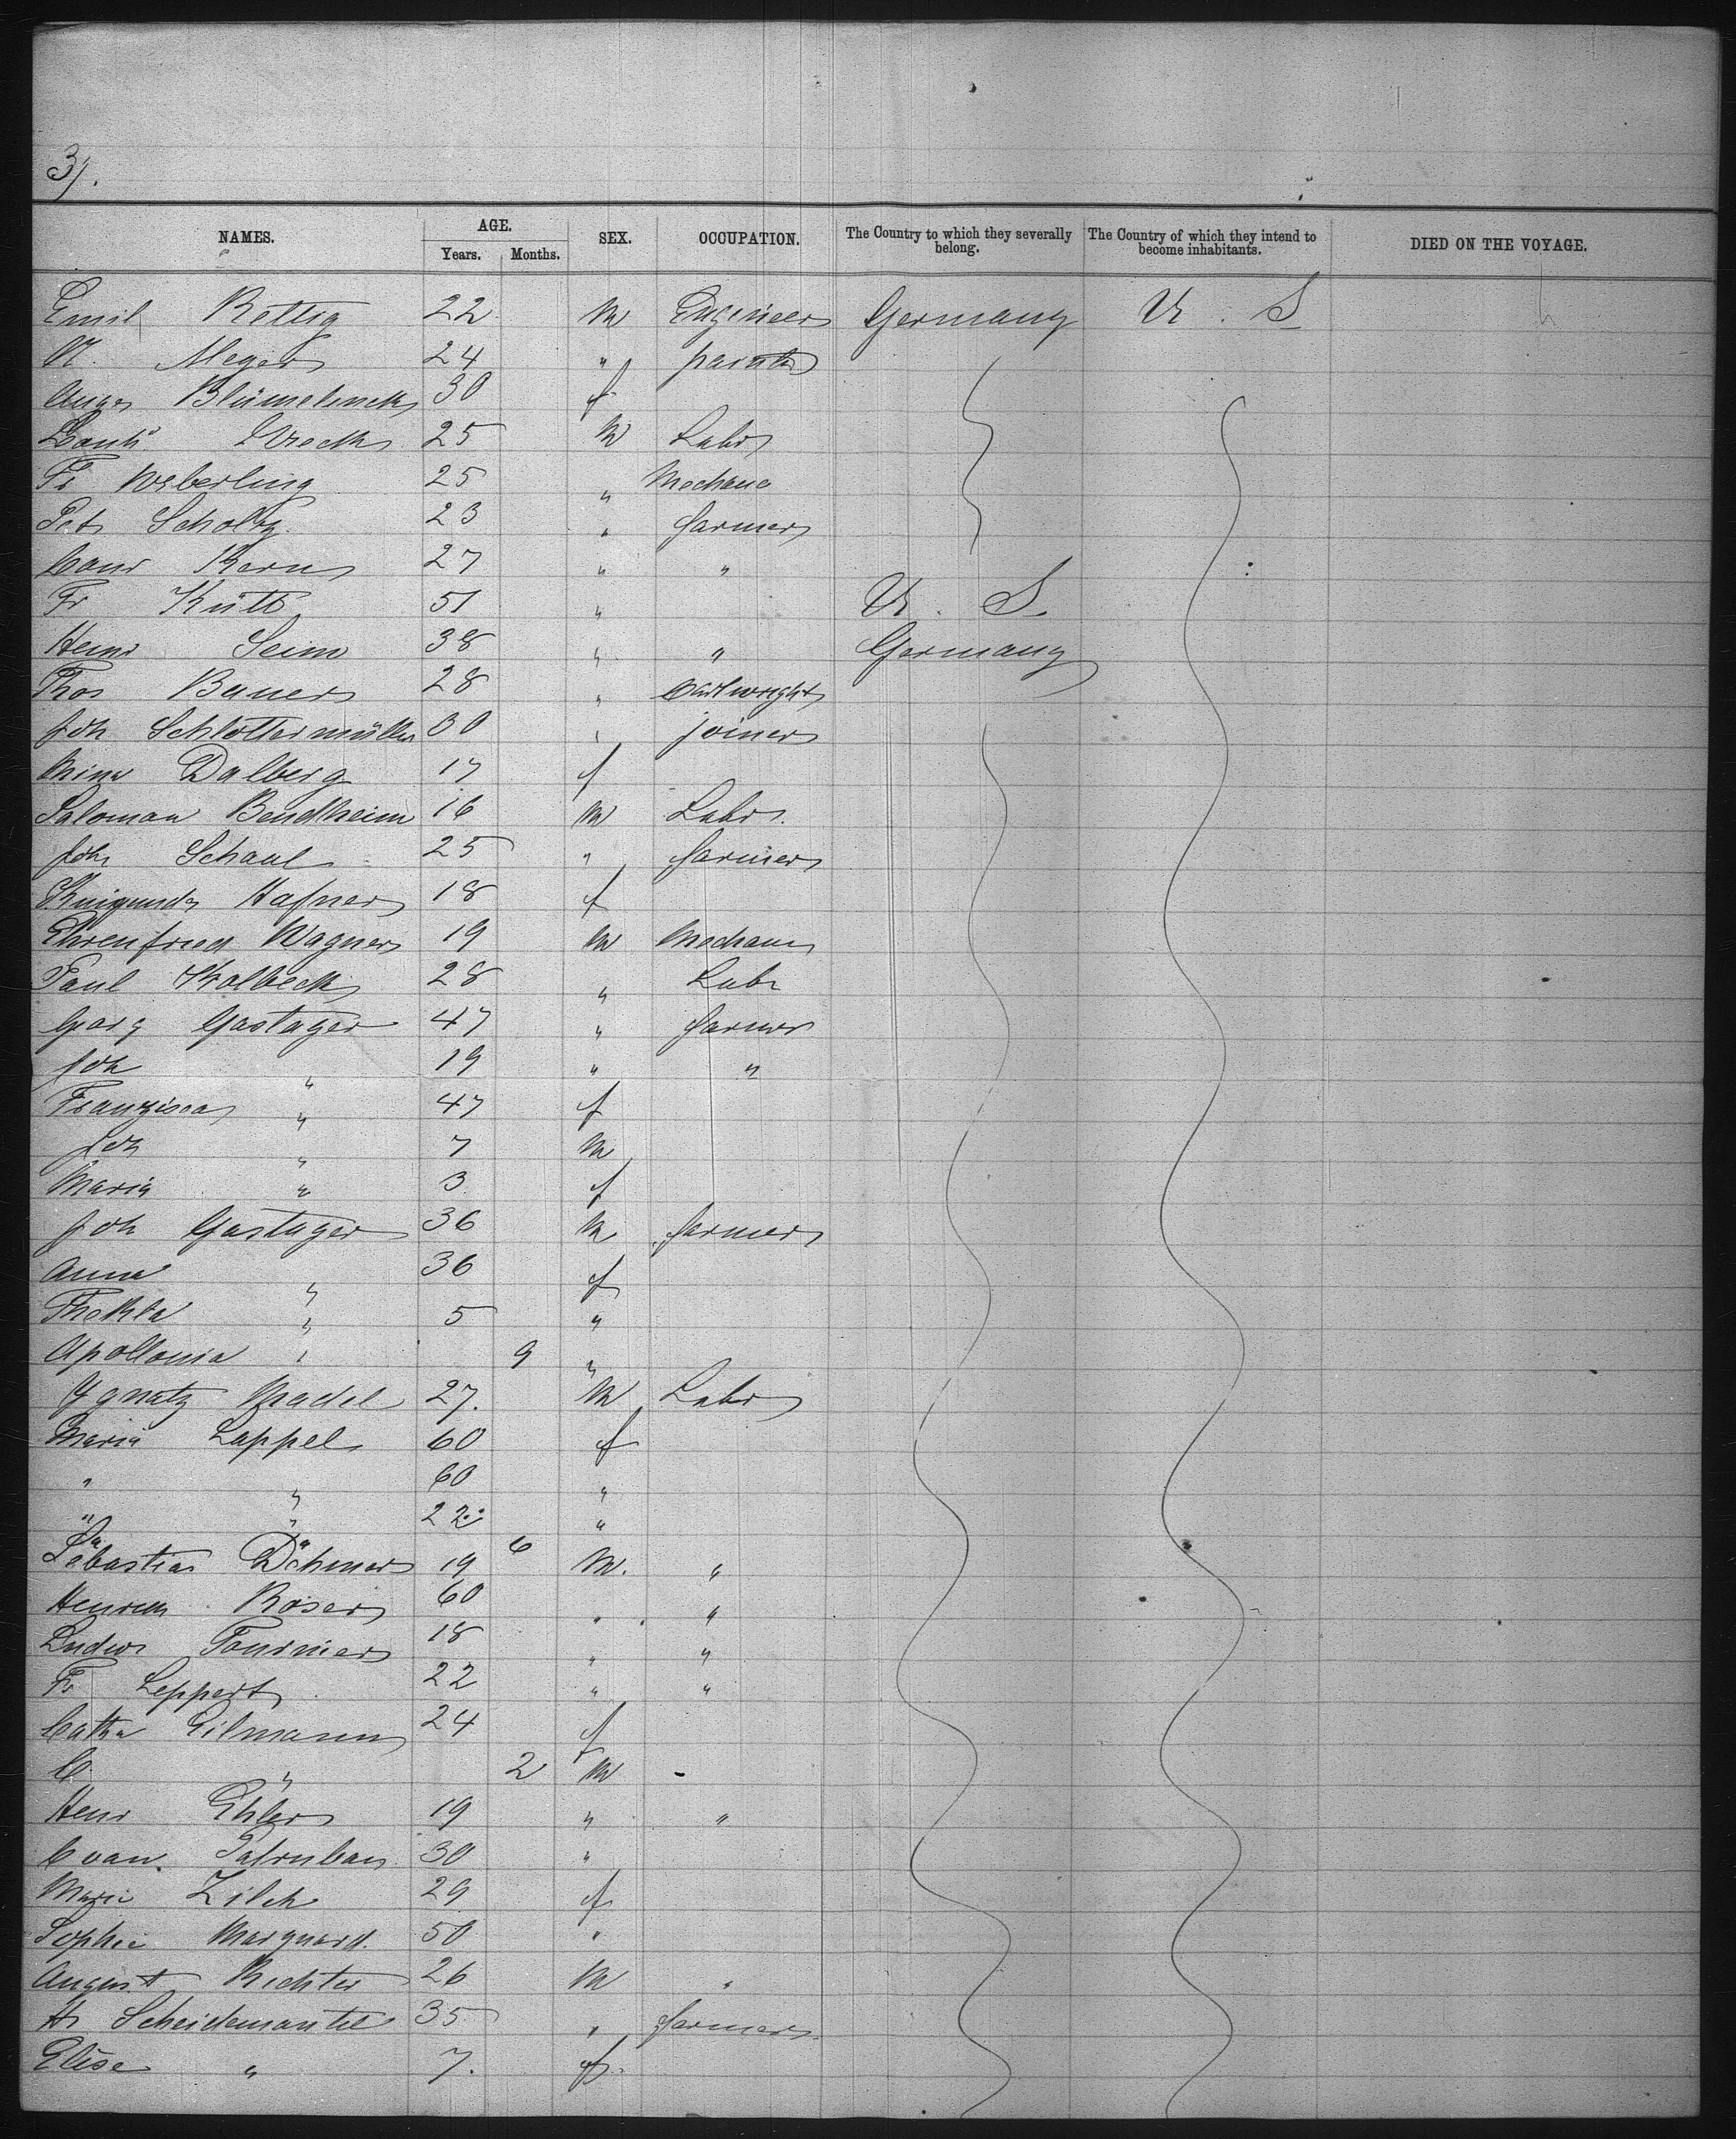 3).
NAMES. AGE. SEX. OCCUPATION. The Country to which they severally belong. The Country of which they intend to become inhabitants. DIED ON THE VOYAGE.
Years. Months.
Emil Rettig 22 m Engineer Germany U. S
Meyer 24 " painter
30 f
25 m Labr
Fr Weberling 25 " Mechanic
Pet Scholz 23 " farmer
Conr Kern 27 " "
Fr 51 " U. S.
Heinr Seim 38 " " Germany
Thos Bauer 28 " Cartwright
Joh Schlottermüller 30 " joiner
Mina Dalberg 17 f
Saloman Bendheim 16 m Labr.
Joh Schaul 25 " farmer
Kunigunda Hafner 18 f
Ehrenfried Wagner 19 m
Paul Kolbeck 28 " Labr
Georg Gastager 47 " farmer
Joh " 19 " "
Franzisca " 47 f
Joh " 7 m
Maria " 3 f
Joh Gastager 36 m farmer
Anna " 36 f
Thekla " 5 "
Apollonia " 9 "
Ygnatz Madel 27. m Labr
Maria Lappel 60 f
" " 60 "
" " 22 "
" " 6
Sebastian 19 m. "
Roser 60 " "
Ludw Fournier 18 " "
Fr Leppert 22 " "
Catha Eilmann 24 f
C. " 2 m -
Heinr Ehlers 19 " "
30 "
Marie Zilch 29 f
Sophie Marquard. 50 "
August Richter 26 m "
Hr Scheidemantel 35 " farmer
Elise " 7. f.